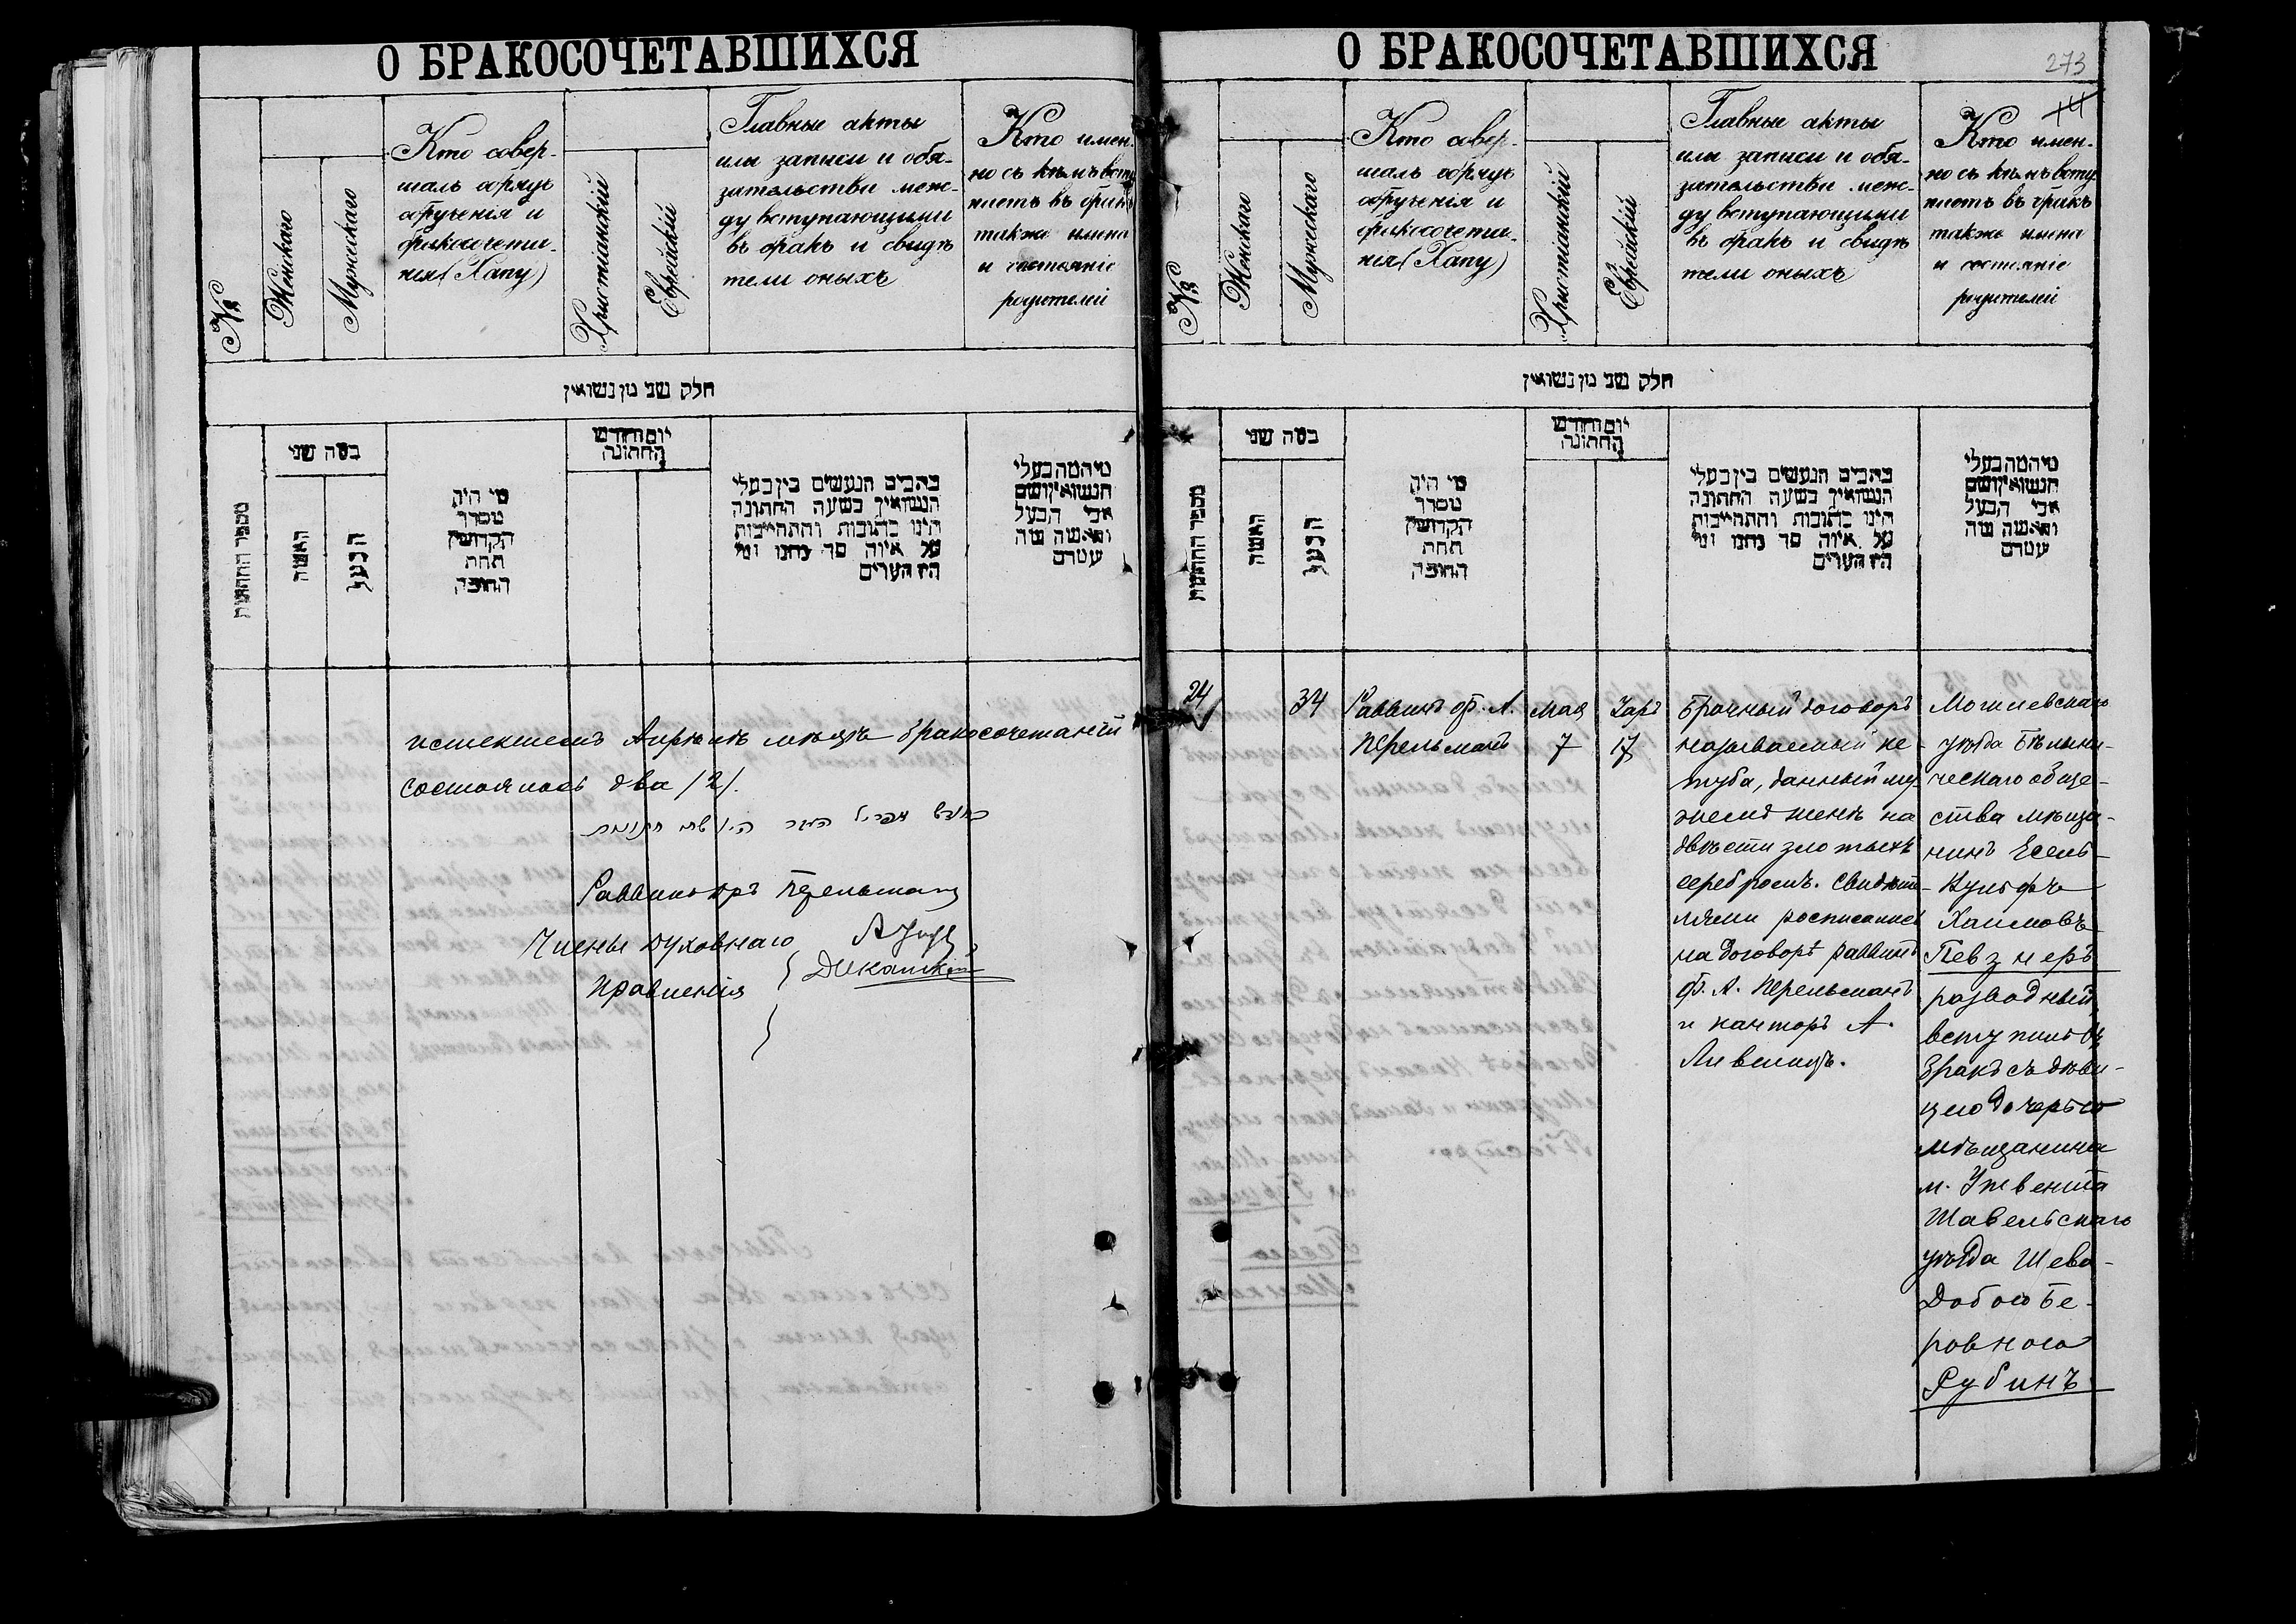 О БРАКОСОЧЕТАВШИХСЯ
№
Женскаго
Мужескаго
Кто совер-
шалъ обрядъ
обрученія и
бракосочета-
нія (Хапу)
Христіанскій
Еврейскій
Главные акты
или записи и обя-
зательства меж-
ду вступающими
въ бракъ и свидѣ
тели оныхъ
Кто имен-
но съ кѣмъ всту
паетъ въ бракъ
также имена
и состояніе
родителей
חלק שני מן נשואין
מספר החתונות
כמה שני
האשה
הבעל
מי היה
מסדר
הקדושין
תחת
החופה
יום וחודש
החתונה
כתבים הנעשים בין בעלי
הנשואין בשעה החתונה
היינו כתובות והתחייבות
על איזה סך נתנו ומי
היו העדים
מי המה בעלי
הנשואין ושם
אבי הבעל
והאשה ומה
עטרם
истекшемъ Апрѣлѣ мѣсяцѣ бракосочетаній
состоялось два /2/.
בחודש אפריל העבר היו שתי חתונות
Раввинъ Ф Перельманъ
Члены духовнаго
Правленія
О БРАКОСОЧЕТАВШИХСЯ
273
14
№
Женскаго
Мужескаго
Кто совер-
шалъ обрядъ
обрученія и
бракосочета-
нія (Хапу)
Христіанскій
Еврейскій
Главные акты
или записи и обя-
зательства меж-
ду вступающими
въ бракъ и свидѣ
тели оныхъ
Кто имен-
но съ кѣмъ всту
паетъ въ бракъ
также имена
и состояніе
родителей
חלק שני מן נשואין
מספר החתונות
כמה שני
האשה
הבעל
מי היה
מסדר
הקדושין
תחת
החופה
יום וחודש
החתונה
כתבים הנעשים בין בעלי
הנשואין בשעה החתונה
היינו כתובות והתחייבות
על איזה סך נתנו ומי
היו העדים
מי המה בעלי
הנשואין ושם
אבי הבעל
והאשה ומה
עטרם
24
34
Раввинъ Ф. А.
Перельманъ
Мая
7
Іаръ
17
Брачный договоръ
называемый ке-
туба, данный му-
жемъ женѣ на
двѣсти злотыхъ
серебромъ. Свидѣте-
лями росписались
на договорѣ раввинъ
Ф. А. Перельманъ
и канторъ А.
Лившицъ.
Могилевскаго
уѣзда Бѣлыни-
ческаго обще-
ства мѣща-
нинъ Есель-
Вульфъ
Хаимовъ
Певзнеръ
разводный,
вступилъ въ
бракъ съ дѣви-
цею дочерью
мѣщанина
м. Ужвента
Шавельскаго
уѣзда Шева-
Добою Бе-
ровною
Рубинъ